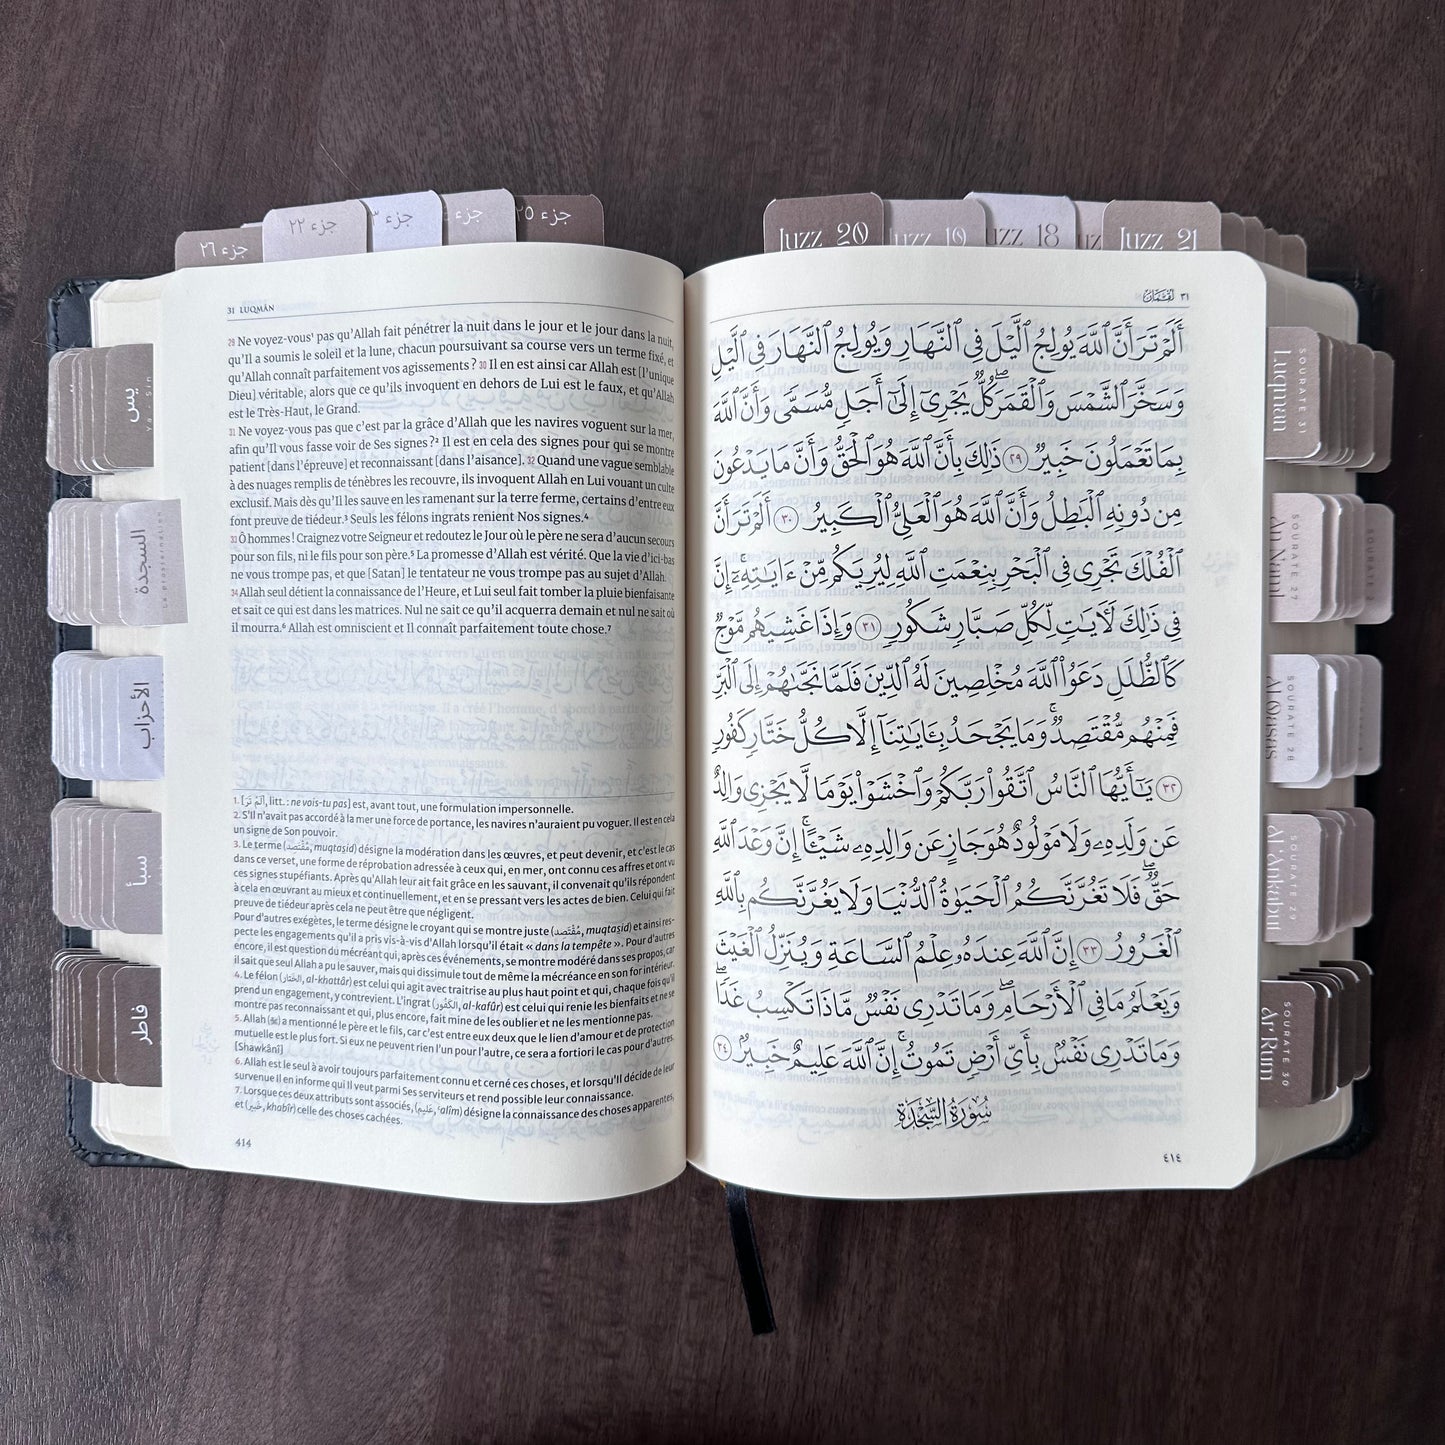 جزء ٢٦
جزء ٢٢
جزء
جزء
جزء ٢٥
Juzz 20
Juzz 19
uzz 18
uz
Juzz 21
31 LUQMÂN
29 Ne voyez-vous¹ pas qu’Allah fait pénétrer la nuit dans le jour et le jour dans la nuit,
qu’Il a soumis le soleil et la lune, chacun poursuivant sa course vers un terme fixé, et
qu’Allah connaît parfaitement vos agissements ? 30 Il en est ainsi car Allah est [l’unique
Dieu] véritable, alors que ce qu’ils invoquent en dehors de Lui est le faux, et qu’Allah
est le Très-Haut, le Grand.
31 Ne voyez-vous pas que c’est par la grâce d’Allah que les navires voguent sur la mer,
afin qu’Il vous fasse voir de Ses signes ?² Il est en cela des signes pour qui se montre
patient [dans l’épreuve] et reconnaissant [dans l’aisance]. 32 Quand une vague semblable
à des nuages remplis de ténèbres les recouvre, ils invoquent Allah en Lui vouant un culte
exclusif. Mais dès qu’Il les sauve en les ramenant sur la terre ferme, certains d’entre eux
font preuve de tiédeur.³ Seuls les félons ingrats renient Nos signes.⁴
33 Ô hommes ! Craignez votre Seigneur et redoutez le Jour où le père ne sera d’aucun secours
pour son fils, ni le fils pour son père.⁵ La promesse d’Allah est vérité. Que la vie d’ici-bas
ne vous trompe pas, et que [Satan] le tentateur ne vous trompe pas au sujet d’Allah.
34 Allah seul détient la connaissance de l’Heure, et Lui seul fait tomber la pluie bienfaisante
et sait ce qui est dans les matrices. Nul ne sait ce qu’il acquerra demain et nul ne sait où
il mourra.⁶ Allah est omniscient et Il connaît parfaitement toute chose.⁷
1. [أَلَمْ تَرَ, litt. : ne vois-tu pas] est, avant tout, une formulation impersonnelle.
2. S’Il n’avait pas accordé à la mer une force de portance, les navires n’auraient pu voguer. Il est en cela
un signe de Son pouvoir.
3. Le terme (مُقْتَصِد, muqtaṣid) désigne la modération dans les œuvres, et peut devenir, et c’est le cas
dans ce verset, une forme de réprobation adressée à ceux qui, en mer, ont connu ces affres et ont vu
ces signes stupéfiants. Après qu’Allah leur ait fait grâce en les sauvant, il convenait qu’ils répondent
à cela en œuvrant au mieux et continuellement, et en se pressant vers les actes de bien. Celui qui fait
preuve de tiédeur après cela ne peut être que négligent.
Pour d’autres exégètes, le terme désigne le croyant qui se montre juste (مُقْتَصِد, muqtaṣid) et ainsi res-
pecte les engagements qu’il a pris vis-à-vis d’Allah lorsqu’il était « dans la tempête ». Pour d’autres
encore, il est question du mécréant qui, après ces événements, se montre modéré dans ses propos, car
il sait que seul Allah a pu le sauver, mais qui dissimule tout de même la mécréance en son for intérieur.
4. Le félon (الخَتَّار, al-khattâr) est celui qui agit avec traitrise au plus haut point et qui, chaque fois qu’il
prend un engagement, y contrevient. L’ingrat (الكَفُور, al-kafûr) est celui qui renie les bienfaits et ne se
montre pas reconnaissant et qui, plus encore, fait mine de les oublier et ne les mentionne pas.
5. Allah (ﷻ) a mentionné le père et le fils, car c’est entre eux deux que le lien d’amour et de protection
mutuelle est le plus fort. Si eux ne peuvent rien l’un pour l’autre, ce sera a fortiori le cas pour d’autres.
[Shawkânî]
6. Allah est le seul à avoir toujours parfaitement connu et cerné ces choses, et lorsqu’Il décide de leur
survenue Il en informe qui Il veut parmi Ses serviteurs et rend possible leur connaissance.
7. Lorsque ces deux attributs sont associés, (عَلِيم, ‘alîm) désigne la connaissance des choses apparentes,
et (خَبِير, khabîr) celle des choses cachées.
414
٣١ لُقْمَان
أَلَمْ تَرَ أَنَّ ٱللَّهَ يُولِجُ ٱلَّيْلَ فِى ٱلنَّهَارِ وَيُولِجُ ٱلنَّهَارَ فِى ٱلَّيْلِ
وَسَخَّرَ ٱلشَّمْسَ وَٱلْقَمَرَ كُلٌّ يَجْرِىٓ إِلَىٰٓ أَجَلٍ مُّسَمًّى وَأَنَّ ٱللَّهَ
بِمَا تَعْمَلُونَ خَبِيرٌ ٢٩ ذَٰلِكَ بِأَنَّ ٱللَّهَ هُوَ ٱلْحَقُّ وَأَنَّ مَا يَدْعُونَ
مِن دُونِهِ ٱلْبَٰطِلُ وَأَنَّ ٱللَّهَ هُوَ ٱلْعَلِىُّ ٱلْكَبِيرُ ٣٠ أَلَمْ تَرَ أَنَّ
ٱلْفُلْكَ تَجْرِى فِى ٱلْبَحْرِ بِنِعْمَتِ ٱللَّهِ لِيُرِيَكُم مِّنْ ءَايَٰتِهِۦٓ ۚ إِنَّ
فِى ذَٰلِكَ لَءَايَٰتٍ لِّكُلِّ صَبَّارٍ شَكُورٍ ٣١ وَإِذَا غَشِيَهُم مَّوْجٌ
كَٱلظُّلَلِ دَعَوُا۟ ٱللَّهَ مُخْلِصِينَ لَهُ ٱلدِّينَ فَلَمَّا نَجَّىٰهُمْ إِلَى ٱلْبَرِّ
فَمِنْهُم مُّقْتَصِدٌ ۚ وَمَا يَجْحَدُ بِـَٔايَٰتِنَآ إِلَّا كُلُّ خَتَّارٍ كَفُورٍ
٣٢ يَٰٓأَيُّهَا ٱلنَّاسُ ٱتَّقُوا۟ رَبَّكُمْ وَٱخْشَوْا۟ يَوْمًا لَّا يَجْزِى وَالِدٌ
عَن وَلَدِهِۦ وَلَا مَوْلُودٌ هُوَ جَازٍ عَن وَالِدِهِۦ شَيْـًٔا ۚ إِنَّ وَعْدَ ٱللَّهِ
حَقٌّ ۖ فَلَا تَغُرَّنَّكُمُ ٱلْحَيَوٰةُ ٱلدُّنْيَا وَلَا يَغُرَّنَّكُم بِٱللَّهِ
ٱلْغَرُورُ ٣٣ إِنَّ ٱللَّهَ عِندَهُۥ عِلْمُ ٱلسَّاعَةِ وَيُنَزِّلُ ٱلْغَيْثَ
وَيَعْلَمُ مَا فِى ٱلْأَرْحَامِ ۖ وَمَا تَدْرِى نَفْسٌ مَّاذَا تَكْسِبُ غَدًا ۖ
وَمَا تَدْرِى نَفْسٌۢ بِأَىِّ أَرْضٍ تَمُوتُ ۚ إِنَّ ٱللَّهَ عَلِيمٌ خَبِيرٌ ٣٤
سُورَةُ السَّجْدَةِ
٤١٤
يس
Ya Sin
السجدة
La prosternation
الأحزاب
سبأ
فاطر
SOURATE 31
Luqman
SOURATE 27
An Naml
SOURATE 28
Al Qasas
SOURATE 29
Al Ankabut
SOURATE 30
Ar Rum